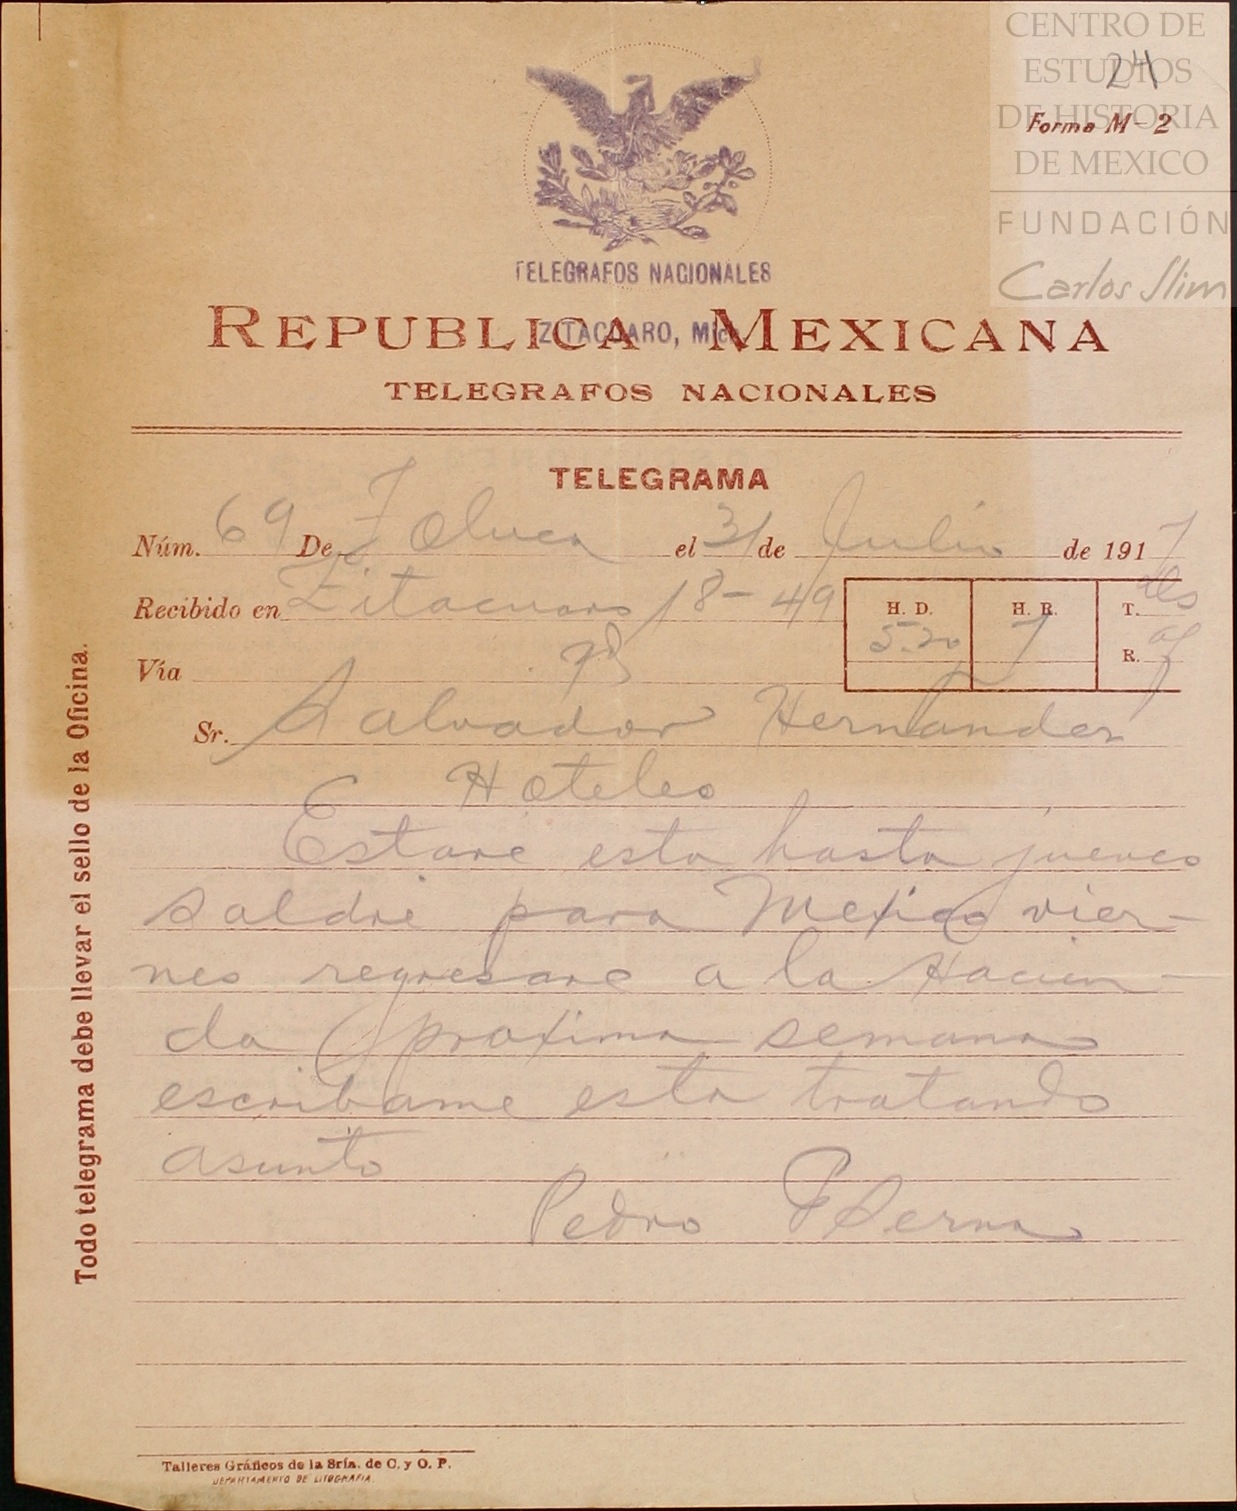 CENTRO DE
ESTUDIOS
DE HISTORIA
DE MEXICO
FUNDACIÓN
Carlos Slim
24
Forma M-2
TELEGRAFOS NACIONALES
ZITACUARO, Mich
REPUBLICA MEXICANA
TELEGRAFOS NACIONALES
TELEGRAMA
Núm. 69 De Toluca el 31 de Julio de 1917
Recibido en Zitacuaro 18-49
H. D. H. R. T.
5.20 7 R.
Vía
Sr. Salvador Hernandez
Hoteles
Estaré esta hasta jueves
saldré para Mexico vier-
nes regresaré a la Hacien-
da proxima semana
escribame esta tratando
asunto
Pedro Serna
Todo telegrama debe llevar el sello de la Oficina.
Talleres Gráficos de la Sría. de C. y O. P.
DEPARTAMENTO DE LITOGRAFIA.